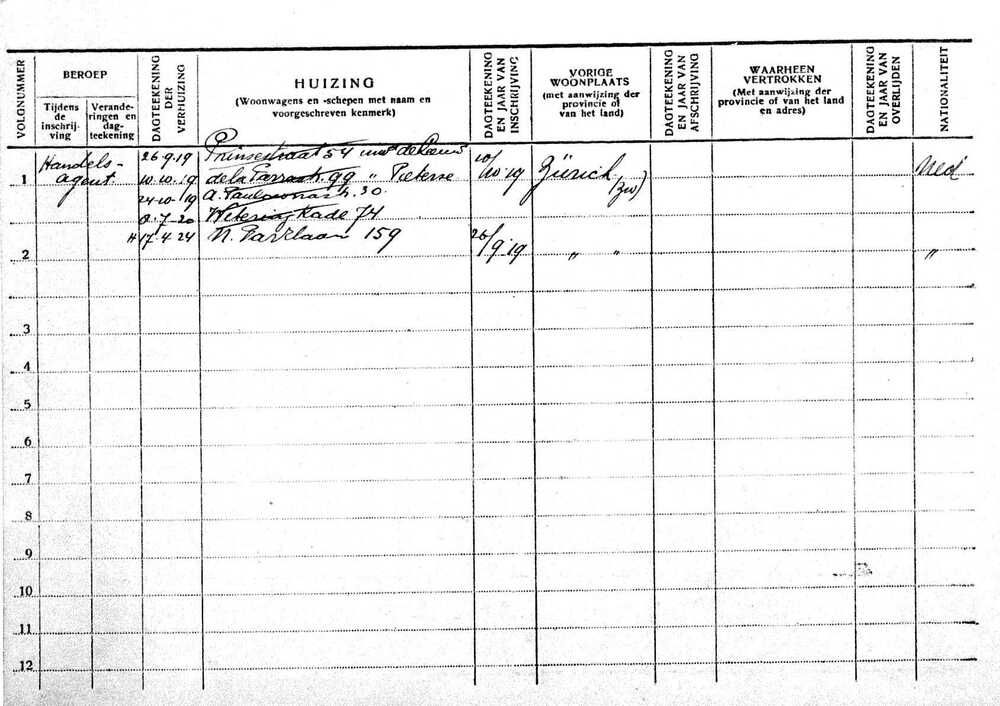 VOLGNUMMER
BEROEP
Tijdens de inschrijving
Veranderingen en dagteekening
DAGTEEKENING DER VERHUIZING
HUIZING
(Woonwagens en -schepen met naam en voorgeschreven kenmerk)
DAGTEEKENING EN JAAR VAN INSCHRIJVING
VORIGE WOONPLAATS
(met aanwijzing der provincie of van het land)
DAGTEEKENING EN JAAR VAN AFSCHRIJVING
WAARHEEN VERTROKKEN
(Met aanwijzing der provincie of van het land en adres)
DAGTEEKENING EN JAAR VAN OVERLIJDEN
NATIONALITEIT
1 Handels-agent
26-9-19 Prinsestraat 54
10/10 '19 Zürich (Zw) Ned
10.10.19 de la Parrastr. 99 " Pieterse
24-10-19 A. Paulownastr. 30.
8.7-20 Weteringkade 74
H 17.4.24 N. Parklaan 159
2 26/9 '19 " " "
3
4
5
6
7
8
9
10
11
12